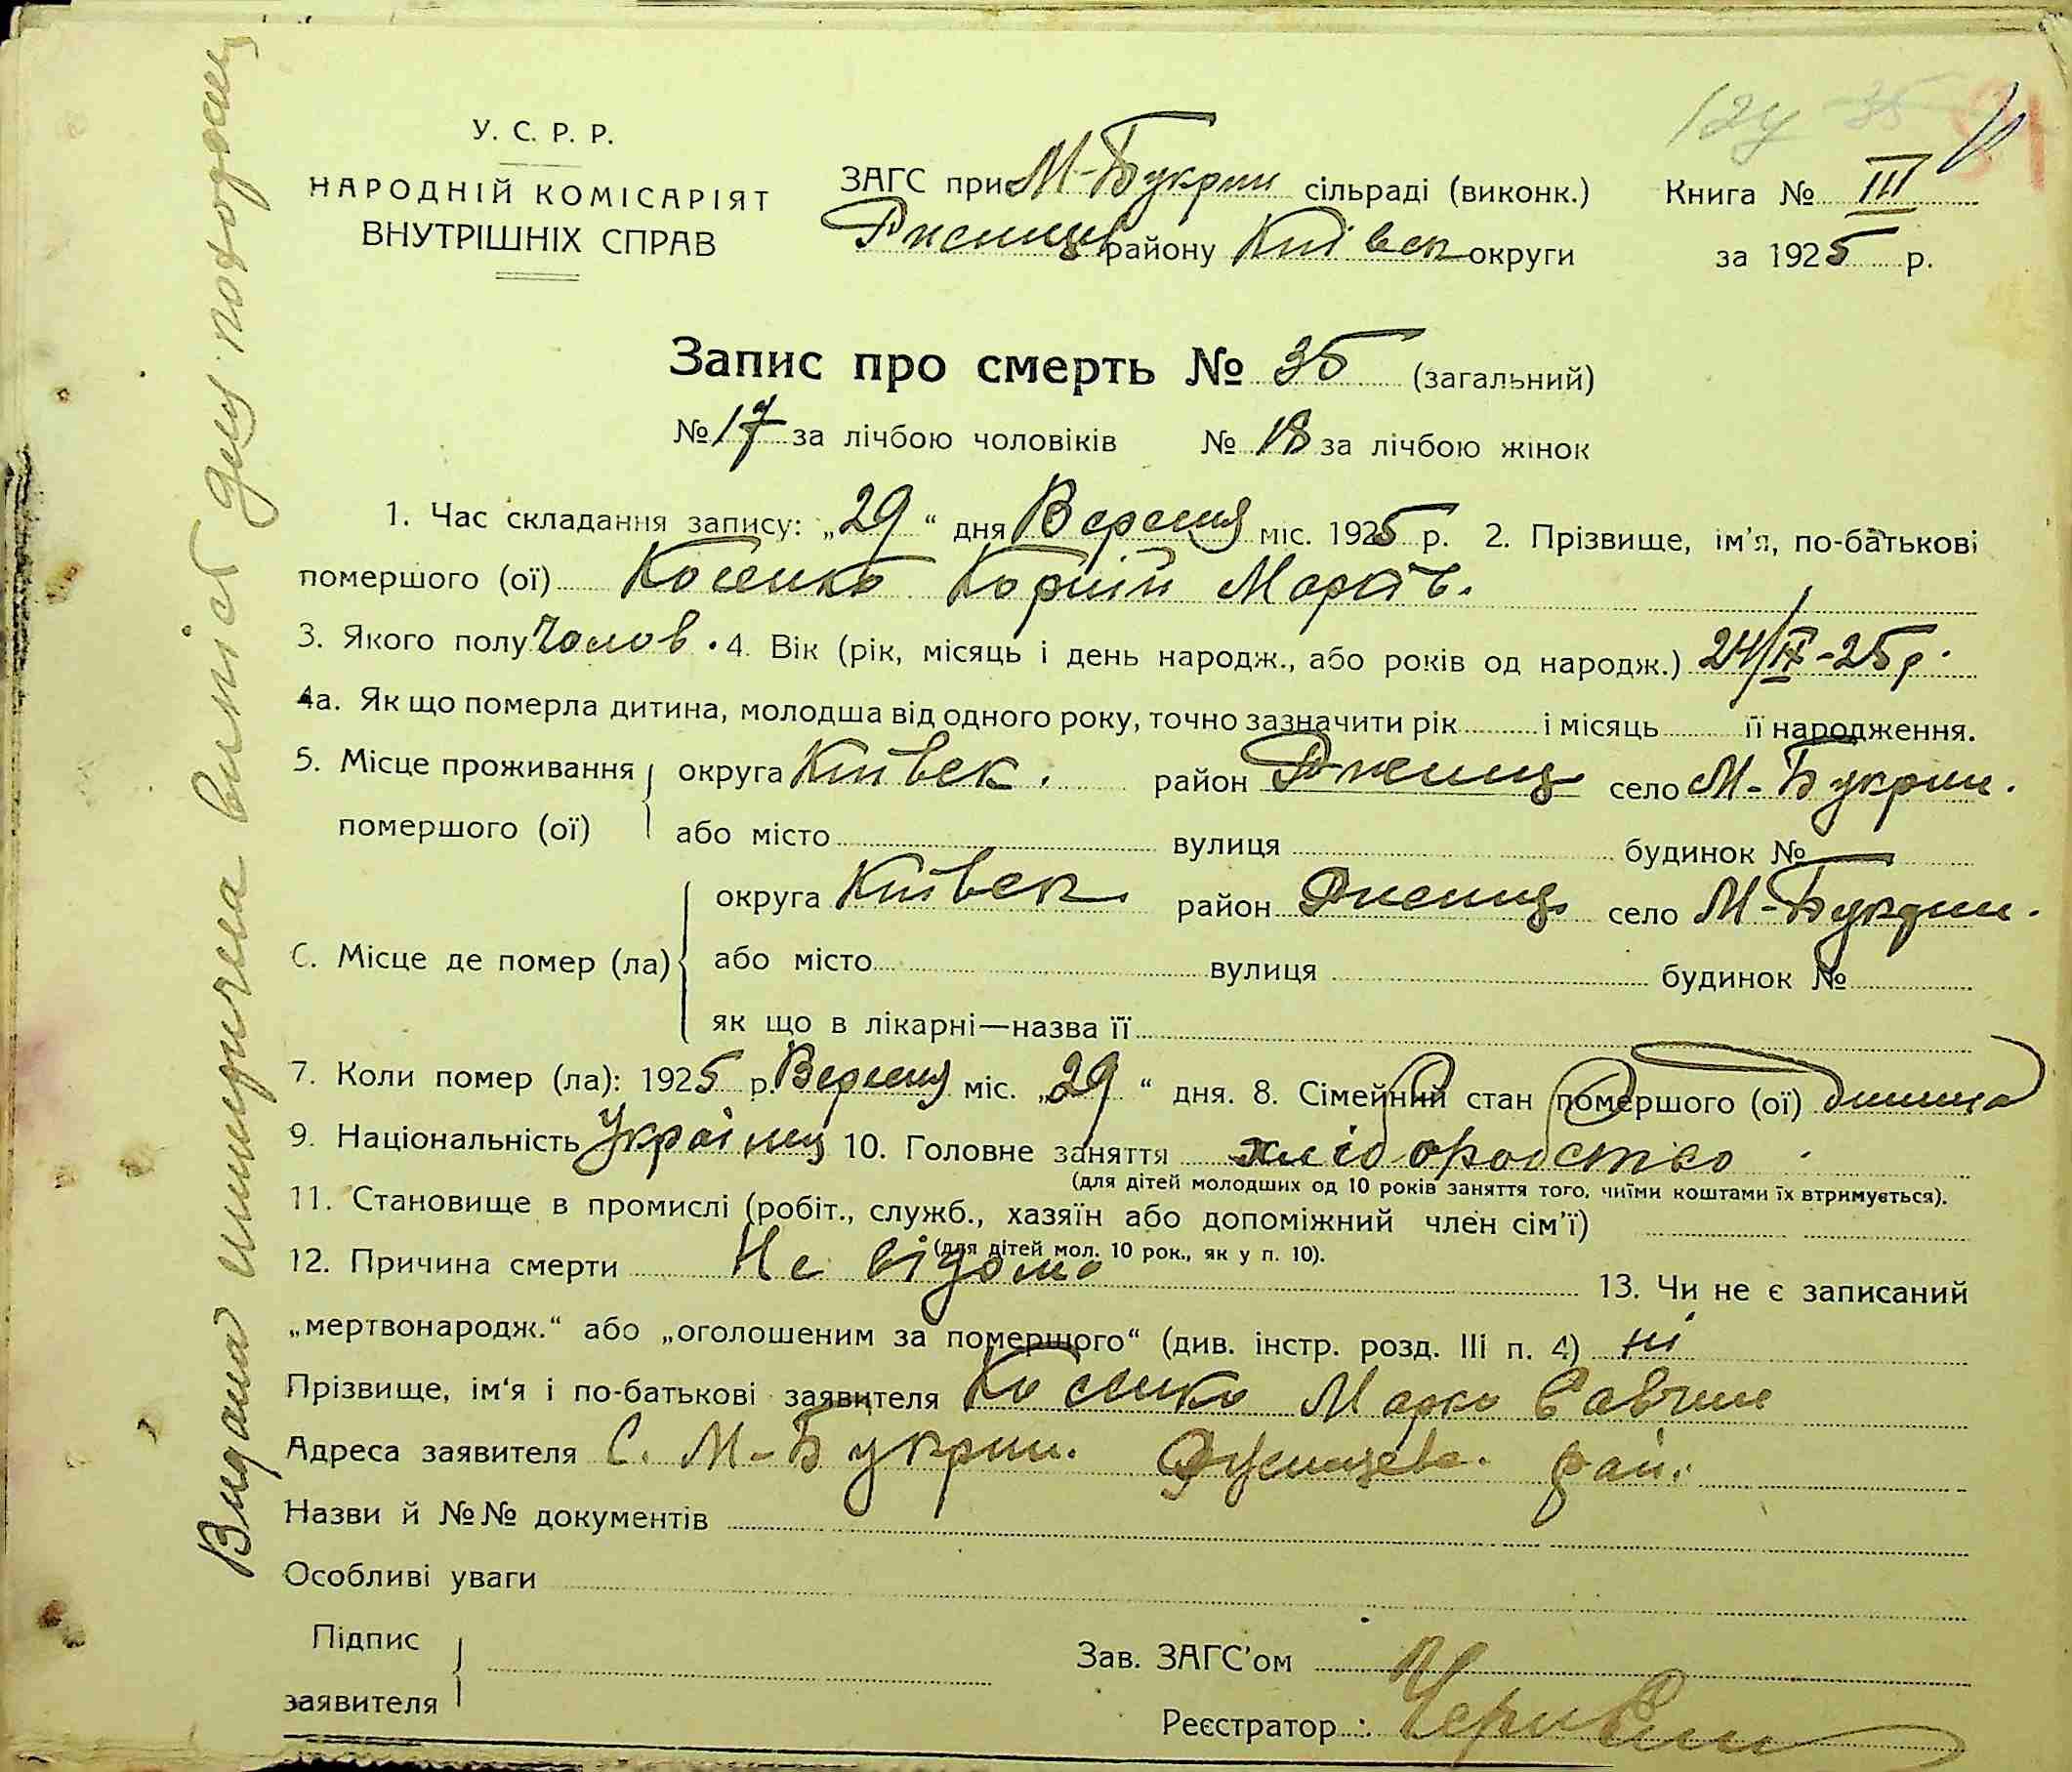 124 35
У. С. Р. Р.
НАРОДНІЙ КОМІСАРІЯТ
ВНУТРІШНІХ СПРАВ
ЗАГС при М-Букрин сільраді (виконк.)
Ржищів району Київськ округи
Книга № III
за 1925 р.
Запис про смерть № 35 (загальний)
№ 17 за лічбою чоловіків № 18 за лічбою жінок
1. Час складання запису: „29“ дня Вересня міс. 1925 р. 2. Прізвище, ім'я, по-батькові
помершого (ої) Косенко Корній Марків.
3. Якого полу Чолов. 4. Вік (рік, місяць і день народж., або років од народж.) 24/IX-25 р.
4а. Як що померла дитина, молодша від одного року, точно зазначити рік і місяць її народження.
5. Місце проживання округа Київск. район Ржищ село М-Букрин.
помершого (ої) або місто вулиця будинок №
округа Київск район Ржищ село М-Букрин.
С. Місце де помер (ла) або місто вулиця будинок №
як що в лікарні—назва її
7. Коли помер (ла): 1925 р. Вересня міс. „29“ дня. 8. Сімейний стан помершого (ої) дитина
9. Національність Українец 10. Головне заняття хліборобство
(для дітей молодших од 10 років заняття того, чиїми коштами їх втримується).
11. Становище в промислі (робіт., служб., хазяїн або допоміжний член сім'ї)
(для дітей мол. 10 рок., як у п. 10).
12. Причина смерти Не відомо 13. Чи не є записаний
„мертвонародж.“ або „оголошеним за померщого“ (див. інстр. розд. III п. 4) ні
Прізвище, ім'я і по-батькові заявителя Косенко Марко Савчин
Адреса заявителя С. М-Букрин. Ржищев. рай.
Назви й №№ документів
Особливі уваги
Підпис
заявителя
Зав. ЗАГС'ом
Реєстратор:
Видана випись